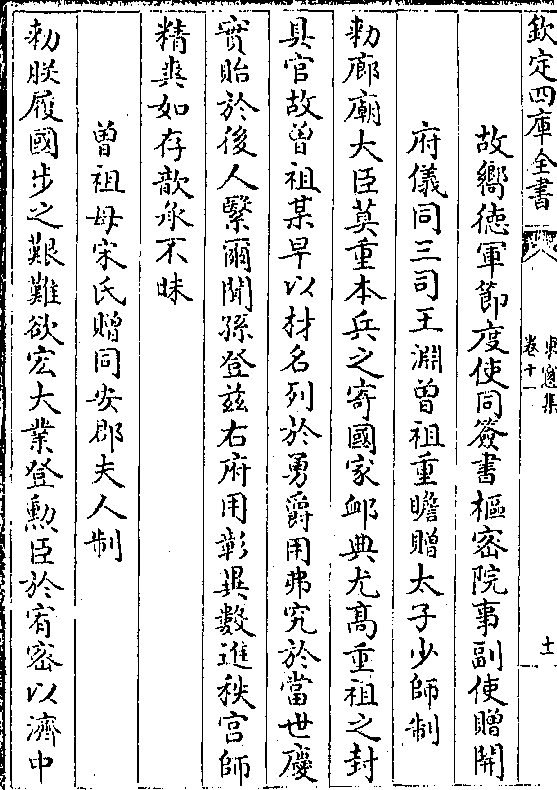 欽定四庫全書
東窗集
卷十一
十一
故嚮徳軍節度使同簽書樞宻院事副使贈開
府儀同三司王淵曾祖重瞻贈太子少師制
勅廊廟大臣莫重本兵之寄國家䘏典尤髙重祖之封
具官故曾祖某早以材名列於勇爵用弗究於當世慶
實貽於後人繄爾聞孫登兹右府用彰異數進秩宫師
精爽如存歆承不昧
曾祖母宋氏贈同安郡夫人制
勅朕履國步之艱難欲宏大業登勲臣於宥宻以濟中